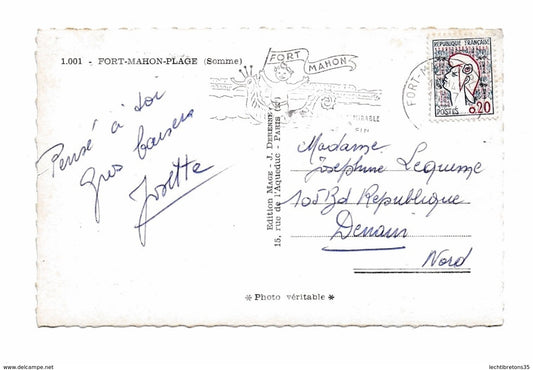 1.001 - FORT-MAHON-PLAGE (Somme)
FORT
MAHON
FORT-M
REPUBLIQUE FRANÇAISE
0,20
POSTES
Pensé à toi
Gros baisers
Josette
Edition MAGE - J. DERENNE
15, rue de l'Aqueduc - PARIS
Madame
Josephine Lequime
105 Bd Republique
Denain
Nord
* Photo véritable *
www.delcampe.net
lechtibretons35